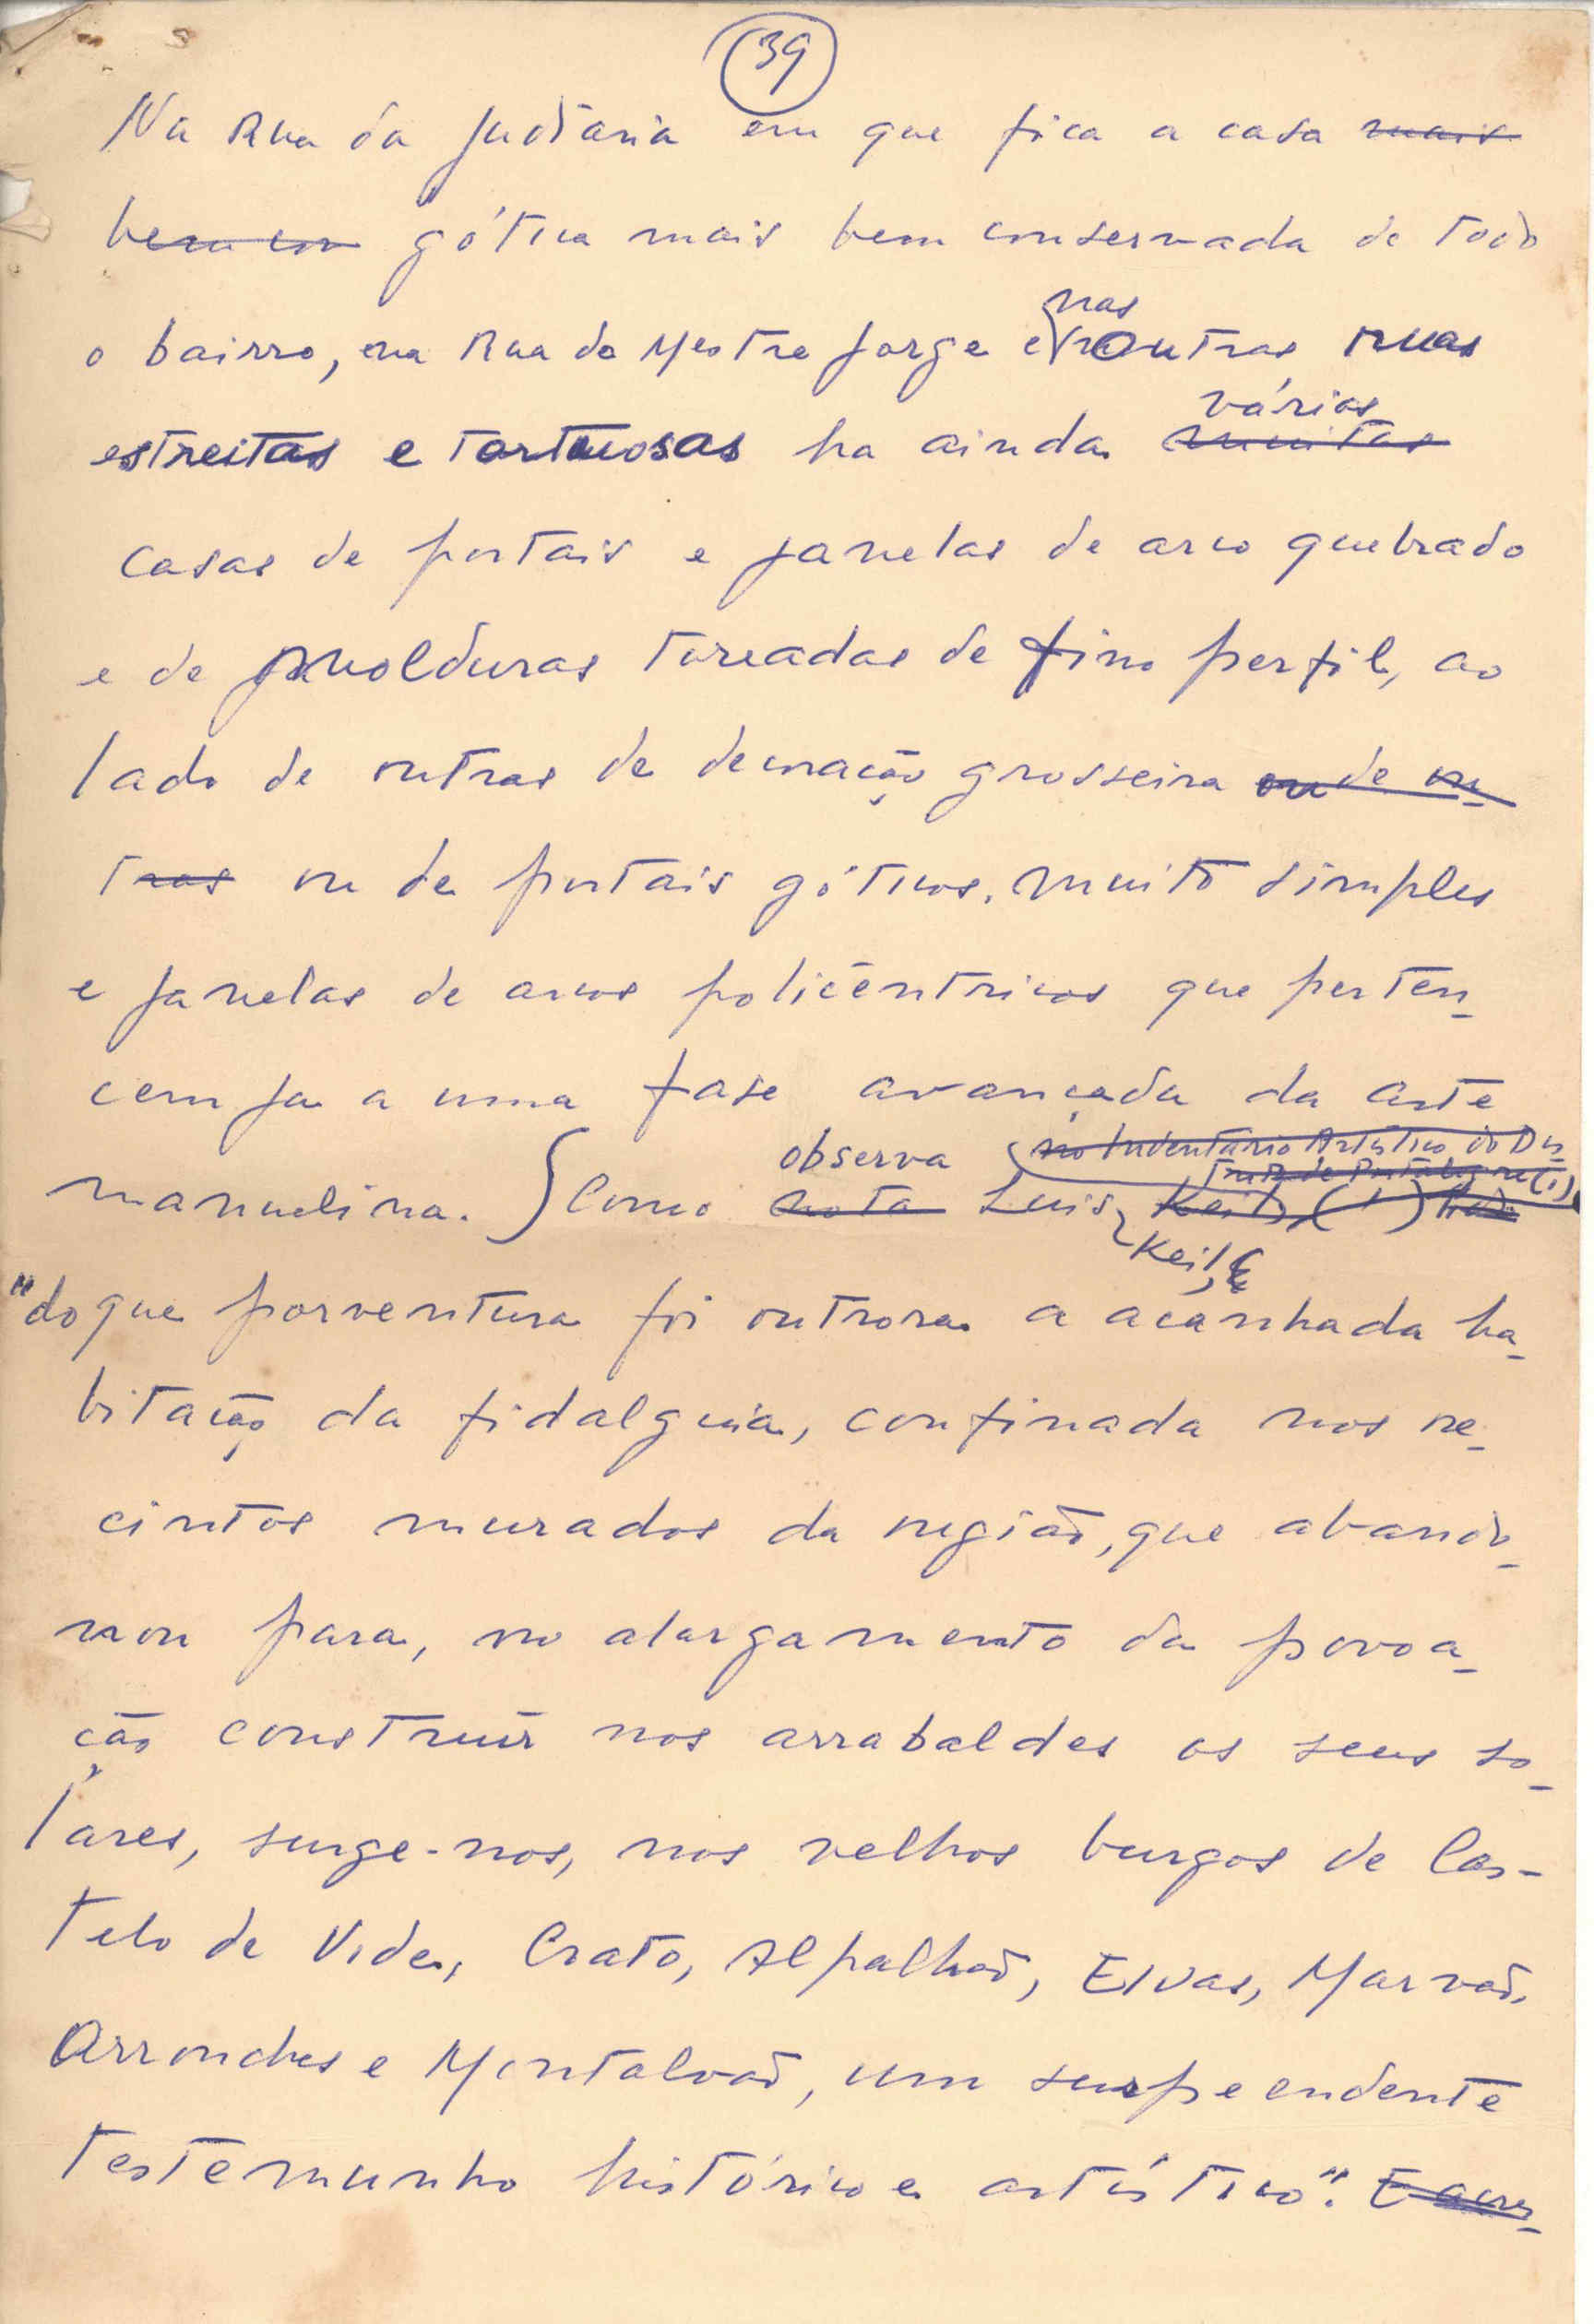 39
Na Rua da Judiaria em que fica a casa mais
bem con gótica mais bem conservada de todo
nas
o bairro, na Rua do Mestre Jorge e outras ruas
várias
estreitas e tortuosas ha ainda muitas
casas de portais e janelas de arco quebrado
e de molduras toreadas de fino perfil, ao
lado de outras de decoração grosseira ou de ou-
tras ou de portais góticos, muito simples
e janelas de arcos policêntricos que perten-
cem ja a uma fase avançada da arte
observa no Inventário Artístico do Dis-
trito de Portalegre (1)
manuelina. Como nota Luis Keil, (1)
Keil,
"do que porventura foi outrora a acanhada ha-
bitação da fidalguia, confinada nos re-
cintos murados da região, que abando-
nou para, no alargamento da povoa-
ção construir nos arrabaldes os seus so-
lares, surge-nos, nos velhos burgos de Cas-
telo de Vide, Crato, Alpalhão, Elvas, Marvão,
Arronches e Montalvão, um surpeendente
testemunho histórico e artístico". E